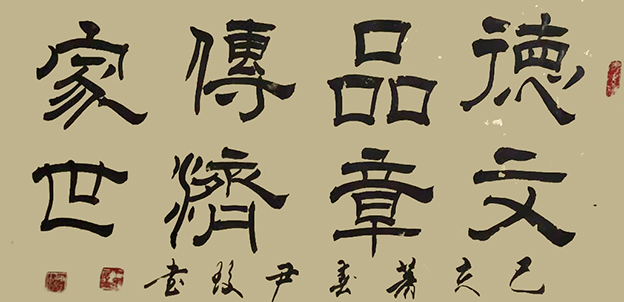 德品傳家
文章濟世
己亥暮春尹書